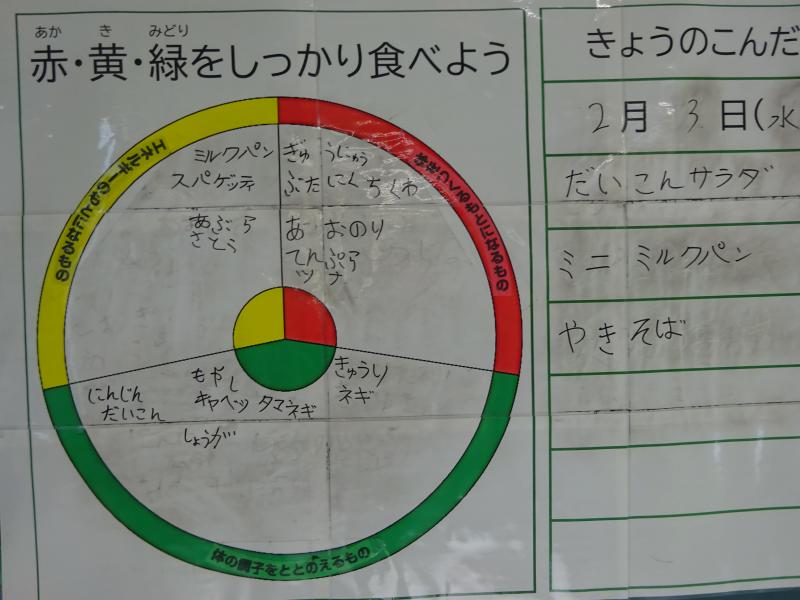 あか き みどり
赤・黄・緑をしっかり食べよう
エネルギーのもとになるもの
体をつくるもとになるもの
体の調子をととのえるもの
ミルクパン
スパゲッティ
あぶら
さとう
ぎゅうにゅう
ぶたにく ちくわ
あおのり
てんぷら
ツナ
にんじん
だいこん
もやし
キャベツ タマネギ
しょうが
きゅうり
ネギ
きょうのこんだ
2月 3日(水
だいこんサラダ
ミニ ミルクパン
やきそば